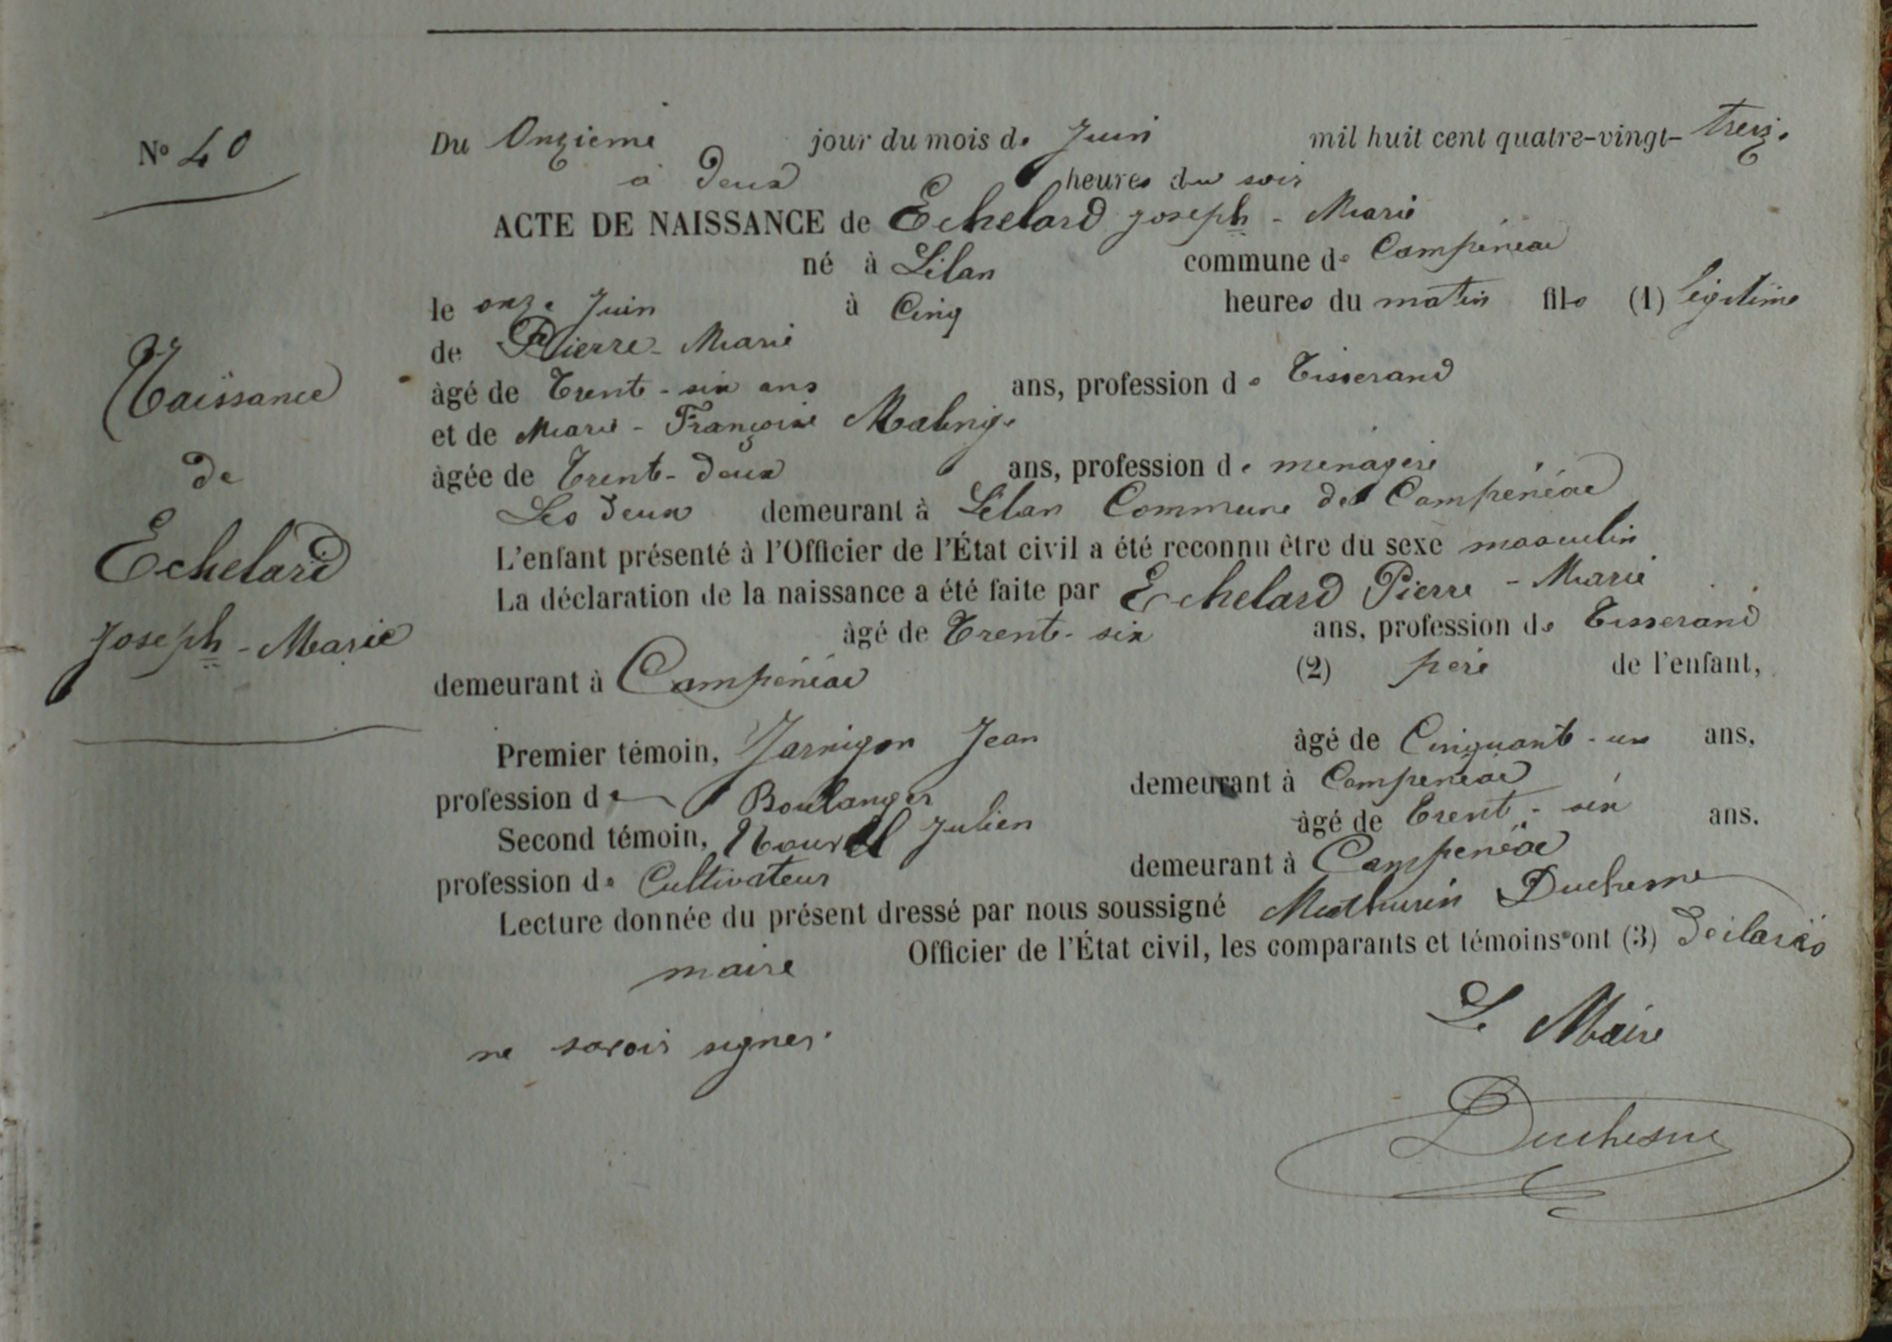 N° 40
Naissance
de
Echelard
Joseph - Marie
Du Onzieme jour du mois de Juin mil huit cent quatre-vingt- treize
à deux heures du soir
ACTE DE NAISSANCE de Echelard Joseph - Marie
né à Lélan commune de Campénéac
le onze Juin à Cinq heures du matin fils (1) légitime
de Pierre - Marie
âgé de Trente - six ans ans, profession de Tisserand
et de Marie - Françoise
âgée de Trente - deux ans, profession de ménagère
Les deux demeurant à Lélan Commune de Campénéac
L'enfant présenté à l'Officier de l'État civil a été reconnu être du sexe masculin
La déclaration de la naissance a été faite par Echelard Pierre - Marie
âgé de Trente - six ans, profession de Tisserand
demeurant à Campénéac (2) père de l'enfant,
Premier témoin, Jarnigon Jean âgé de Cinquante - un ans,
profession de Boulanger demeurant à Campénéac
Second témoin, Nourel Julien âgé de Trente - six ans.
profession de Cultivateur demeurant à Campénéac
Lecture donnée du présent dressé par nous soussigné Mathurin Duchesne
maire Officier de l'État civil, les comparants et témoins ont (3) déclarés
ne savoir signer.
Le Maire
Duchesne